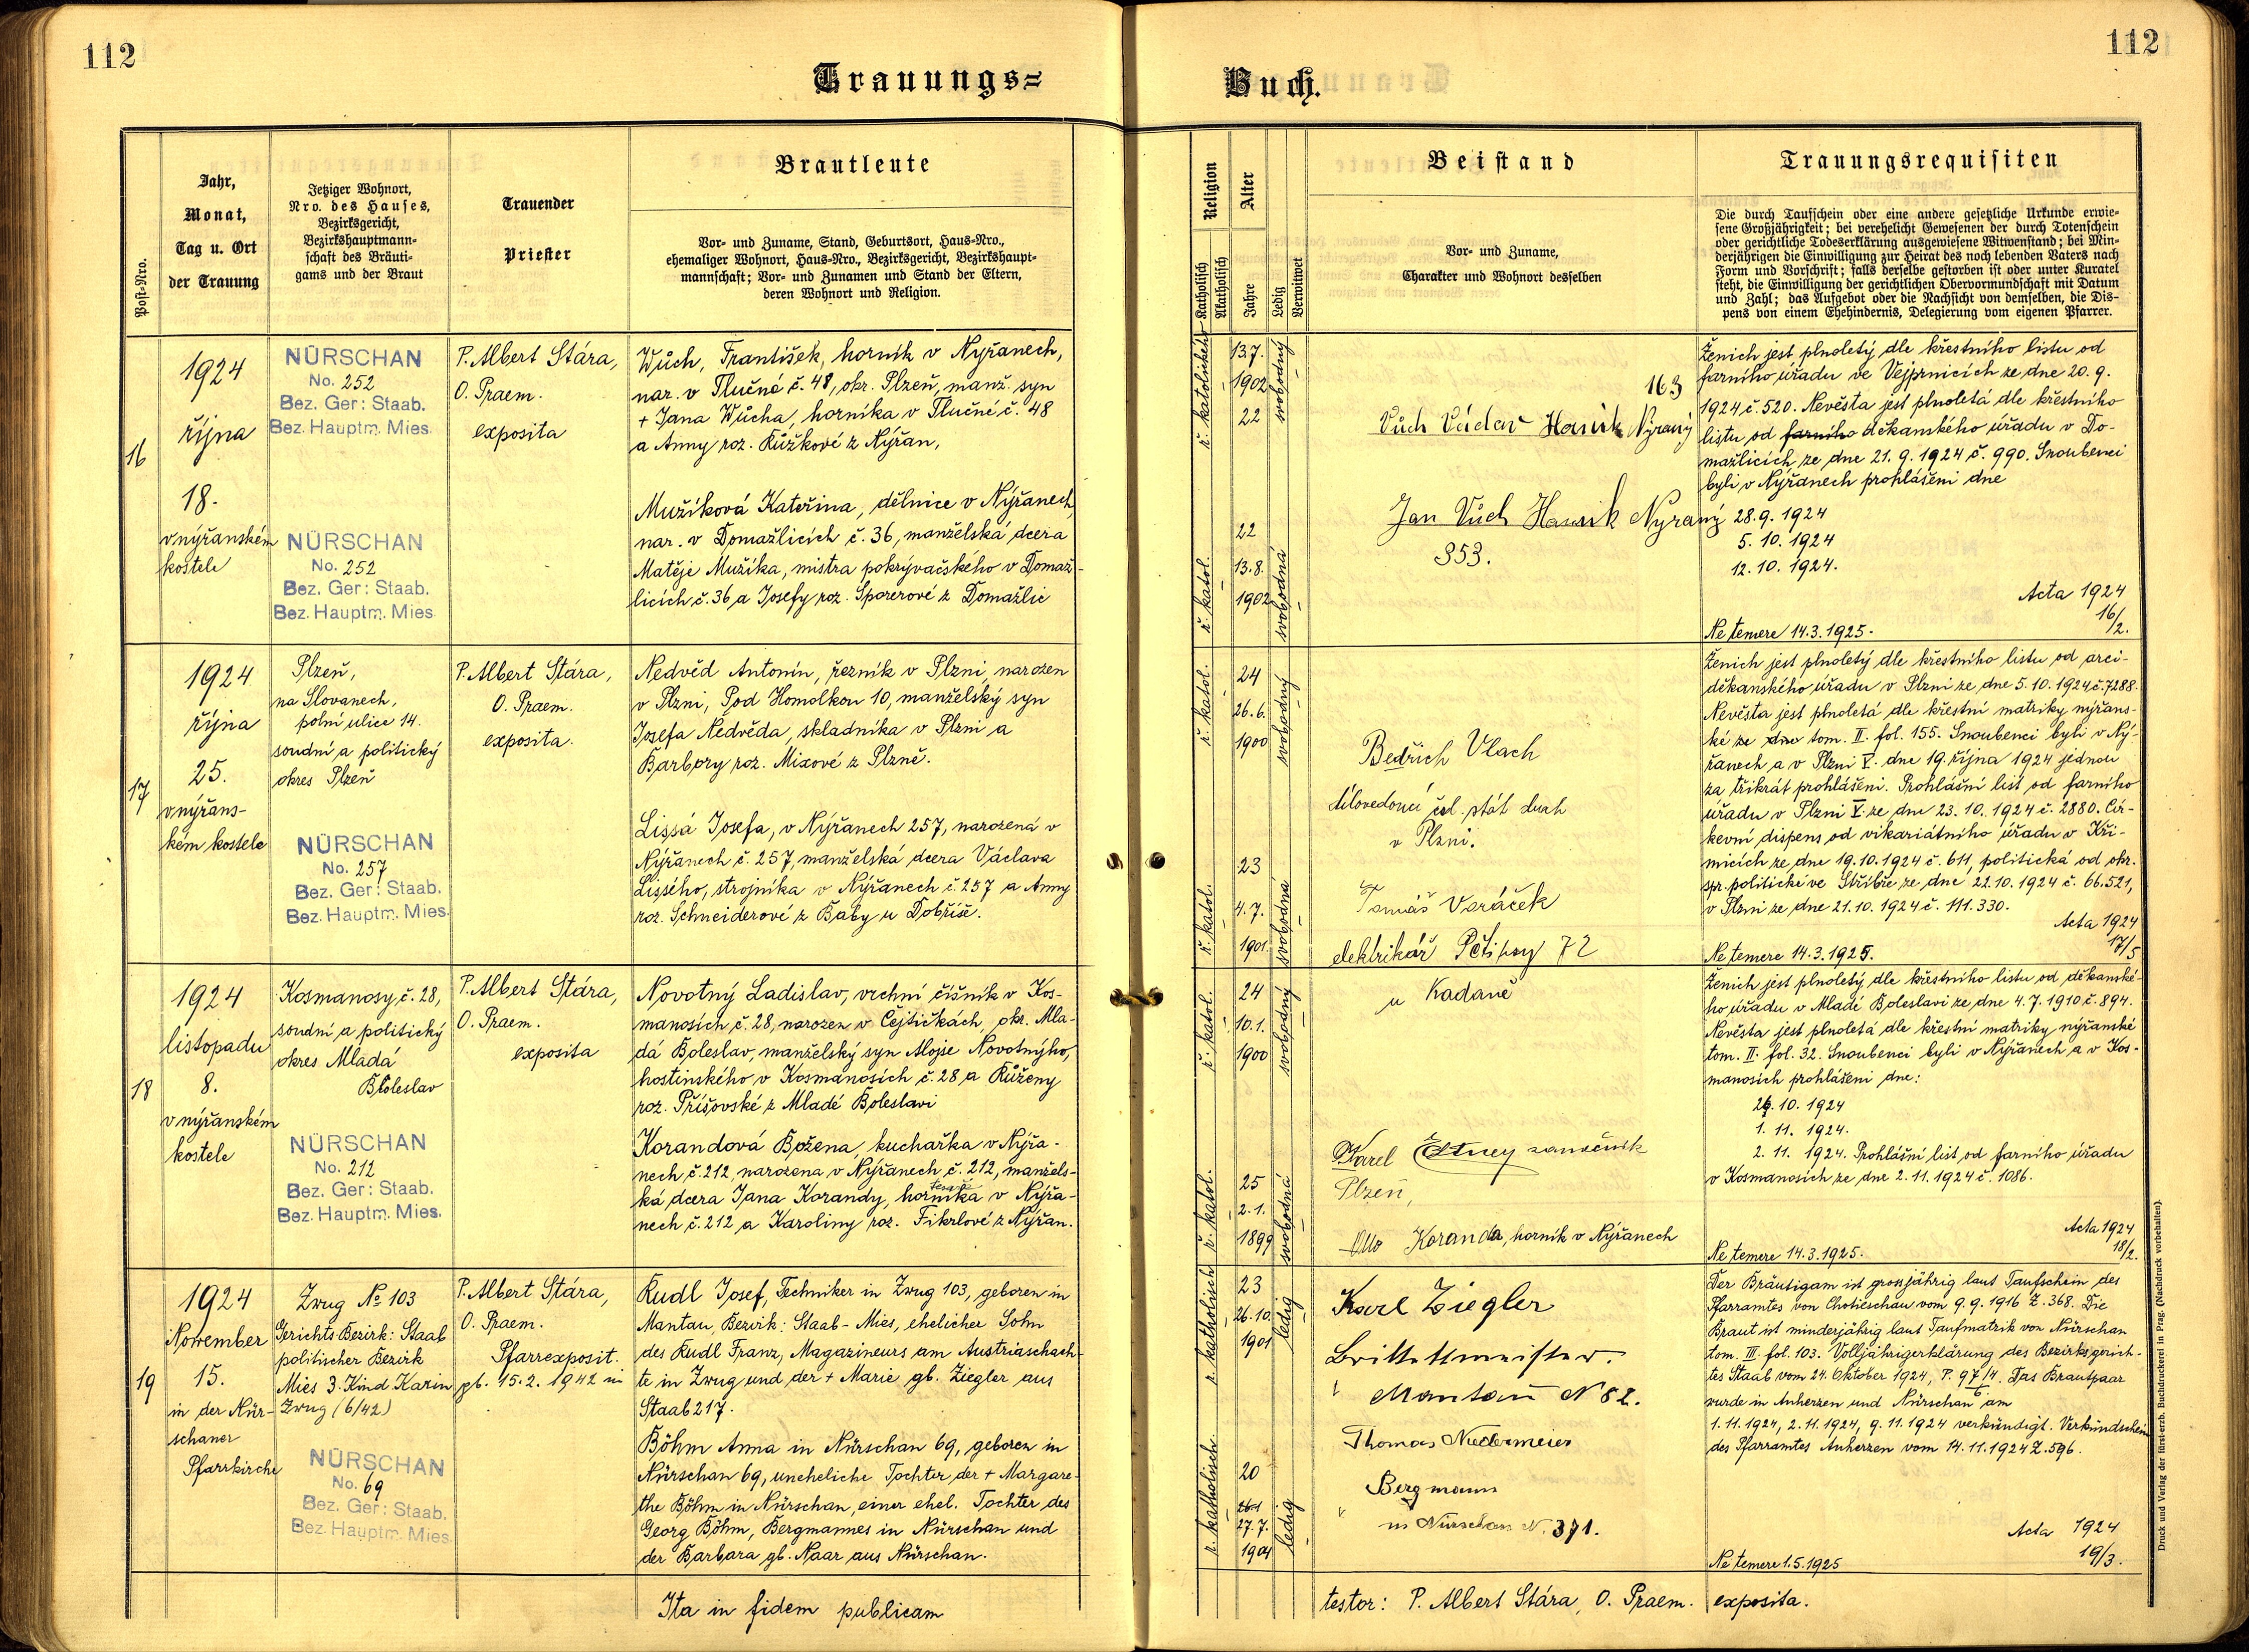 112
112
Trauungs=
Buch.
Post-Nro.
Jahr,
Monat,
Tag u. Ort
der Trauung
Jetziger Wohnort,
Nro. des Hauses,
Bezirksgericht,
Bezirkshauptmann-
schaft des Bräuti-
gams und der Braut
Trauender
Priester
Brautleute
Vor- und Zuname, Stand, Geburtsort, Haus-Nro.,
ehemaliger Wohnort, Haus-Nro., Bezirksgericht, Bezirkshaupt-
mannschaft; Vor- und Zunamen und Stand der Eltern,
deren Wohnort und Religion.
Religion
Katholisch
Akatholisch
Alter
Jahre
Ledig
Verwitwet
Beistand
Vor- und Zuname,
Charakter und Wohnort desselben
Trauungsrequisiten
Die durch Taufschein oder eine andere gesetzliche Urkunde erwie-
sene Großjährigkeit; bei verehelicht Gewesenen der durch Totenschein
oder gerichtliche Todeserklärung ausgewiesene Witwenstand; bei Min-
derjährigen die Einwilligung zur Heirat des noch lebenden Vaters nach
Form und Vorschrift; falls derselbe gestorben ist oder unter Kuratel
steht, die Einwilligung der gerichtlichen Obervormundschaft mit Datum
und Zahl; das Aufgebot oder die Nachsicht von demselben, die Dis-
pens von einem Ehehindernis, Delegierung vom eigenen Pfarrer.
16
1924
října
18.
v nýřanském
kostele
NÜRSCHAN
No. 252
Bez. Ger: Staab.
Bez. Hauptm. Mies.
NÜRSCHAN
No. 252
Bez. Ger: Staab.
Bez. Hauptm. Mies.
P. Albert Stára,
O. Praem.
exposita
Wůch, František, horník v Nyřanech,
nar. v Tlučné č. 48, okr. Plzeň, manž. syn
+ Jana Wůcha, horníka v Tlučné č. 48
a Anny roz. Růžkové z Nýřan,
Mužíková Kateřina, dělnice v Nýřanech,
nar. v Domažlicích č. 36, manželská dcera
Matěje Mužíka, mistra pokrývačského v Domaž-
licích č. 36 a Josefy roz. Sporerové z Domažlic
ř. katolického
13.7.
1902
22
svobodný
ř. katol.
22
13.8.
1902
svobodná
163
Vůch Václav Horník Nýrany
Jan Vůch Horník Nyrany
353.
Ženich jest plnoletý dle křestního listu od
farního úřadu ve Vejprnicích ze dne 20. 9.
1924 č. 520. Nevěsta jest plnoletá dle křestního
listu od farního děkanského úřadu v Do-
mažlicích ze dne 21. 9. 1924 č. 990. Snoubenci
byli v Nýřanech prohlášeni dne
28. 9. 1924
5. 10. 1924
12. 10. 1924.
Acta 1924
16/2.
Ne temere 14.3.1925.
17
1924
října
25.
v nýřans-
kém kostele
Plzeň,
na Slovanech,
polní ulice 14.
soudní a politický
okres Plzeň
NÜRSCHAN
No. 257
Bez. Ger: Staab.
Bez. Hauptm. Mies.
P. Albert Stára,
O. Praem.
exposita.
Nedvěd Antonín, řezník v Plzni, narozen
v Plzni, Pod Homolkou 10, manželský syn
Josefa Nedvěda, skladníka v Plzni a
Barbory roz. Mixové z Plzně.
Lissá Josefa, v Nýřanech 257, narozená v
Nýřanech č. 257, manželská dcera Václava
Lissého, strojníka v Nýřanech č. 257 a Anny
roz. Schneiderové z Baby u Dobříše.
ř. katol.
24
26.6.
1900
svobodný
ř. katol.
23
4.7.
1901.
svobodná
Bedřich Vlach
dílovedoucí čsl. stát drah
v Plzni.
Tomáš Voráček
elektrikář Pětipsy 72
u Kadaně
Ženich jest plnoletý dle křestního listu od arci-
děkanského úřadu v Plzni ze dne 5. 10. 1924 č. 7288.
Nevěsta jest plnoletá dle křestní matriky nýřans-
ké ze dne tom. II. fol. 155. Snoubenci byli v Ný-
řanech a v Plzni V. dne 19. října 1924 jednou
za třikrát prohlášeni. Prohlášní list od farního
úřadu v Plzni V. ze dne 23. 10. 1924 č. 2880. Cír-
kevní dispens od vikariátního úřadu v Kři-
micích ze dne 19. 10. 1924 č. 611, politická od okr.
spr. politické ve Stříbře ze dne 22.10. 1924 č. 66.521,
v Plzni ze dne 21. 10. 1924 č. 111.330.
Acta 1924
17/5
Ne temere 14.3.1925.
18
1924
listopadu
8.
v nýřanském
kostele
Kosmanosy, č. 28,
soudní a politický
okres Mladá
Boleslav
NÜRSCHAN
No. 212
Bez. Ger: Staab.
Bez. Hauptm. Mies.
P. Albert Stára,
O. Praem.
exposita
Novotný Ladislav, vrchní číšník v Kos-
manosích č. 28, narozen v Čejtičkách, okr. Mla-
dá Boleslav, manželský syn Aloise Novotného,
hostinského v Kosmanosích č. 28 a Růženy
roz. Příšovské z Mladé Boleslavi
Korandová Božena, kuchařka v Nýřa-
nech č. 212, narozena v Nýřanech č. 212, manžels-
ká dcera Jana Korandy, horníka v Nýřa-
nech č. 212 a Karoliny roz. Fikrlové z Nýřan.
ř. katol.
24
10.1.
1900
svobodný
ř. katol.
25
2.1.
1899
svobodná
Karel zámečník
Plzeň,
Otto Koranda, horník v Nýřanech
Ženich jest plnoletý, dle křestního listu od děkanské-
ho úřadu v Mladé Boleslavi ze dne 4. 7. 1910 č. 894.
Nevěsta jest plnoletá dle křestní matriky nýřanské
tom. II. fol. 32. Snoubenci byli v Nýřanech a v Kos-
manosích prohlášeni dne:
26. 10. 1924
1. 11. 1924.
2. 11. 1924. Prohlášní list od farního úřadu
v Kosmanosích ze dne 2. 11. 1924 č. 1086.
Acta 1924
18/2.
Ne temere 14.3.1925.
19
1924
November
15.
in der Nür-
schaner
Pfarrkirche
Zwug № 103
Gerichts-Bezirk: Staab
politischer Bezirk
Mies 3. Kind Karin gb. 15.2. 1942 in
Zwug (6/42)
NÜRSCHAN
No. 69
Bez. Ger: Staab.
Bez. Hauptm. Mies.
P. Albert Stára,
O. Praem.
Pfarrexposit.
Rudl Josef, Techniker in Zwug 103, geboren in
Mantau, Bezirk: Staab - Mies, ehelicher Sohn
des Rudl Franz, Magazineurs am Austriaschach-
te in Zwug und der + Marie gb. Ziegler aus
Staab 217.
Böhm Anna in Nürschan 69, geboren in
Nürschan 69, uneheliche Tochter der + Margare-
the Böhm in Nürschan, einer ehel. Tochter des
Georg Böhm, Bergmannes in Nürschan und
der Barbara gb. Naar aus Nürschan.
r. katholisch
23
26.10.
1901
ledig
r. katholisch
20
27.7.
1904
ledig
Karl Ziegler
Mantau N 82.
Thomas Niedermeier
Bergmann
in Nürschan N. 371.
Der Bräutigam ist grossjährig laut Taufschein des
Pfarramtes von Chotieschau vom 9. 9. 1916 Z. 368. Die
Braut ist minderjährig laut Taufmatrik von Nürschan
tom. III. fol. 103. Volljährigerklärung des Bezirksgerich-
tes Staab vom 24. Oktober 1924, P. 97/4 6. Das Brautpaar
wurde in Anherzen und Nürschan am
1. 11. 1924, 2. 11. 1924, 9. 11. 1924 verkündigt. Verkündschein
des Pfarramtes Anherzen vom 14. 11. 1924 Z. 596.
Acta 1924
19/3.
Ne temere 1.5.1925
Ita in fidem publicam
testor: P. Albert Stára, O. Praem. exposita.
Druck und Verlag der fürst-erzb. Buchdruckerei in Prag. (Nachdruck vorbehalten)